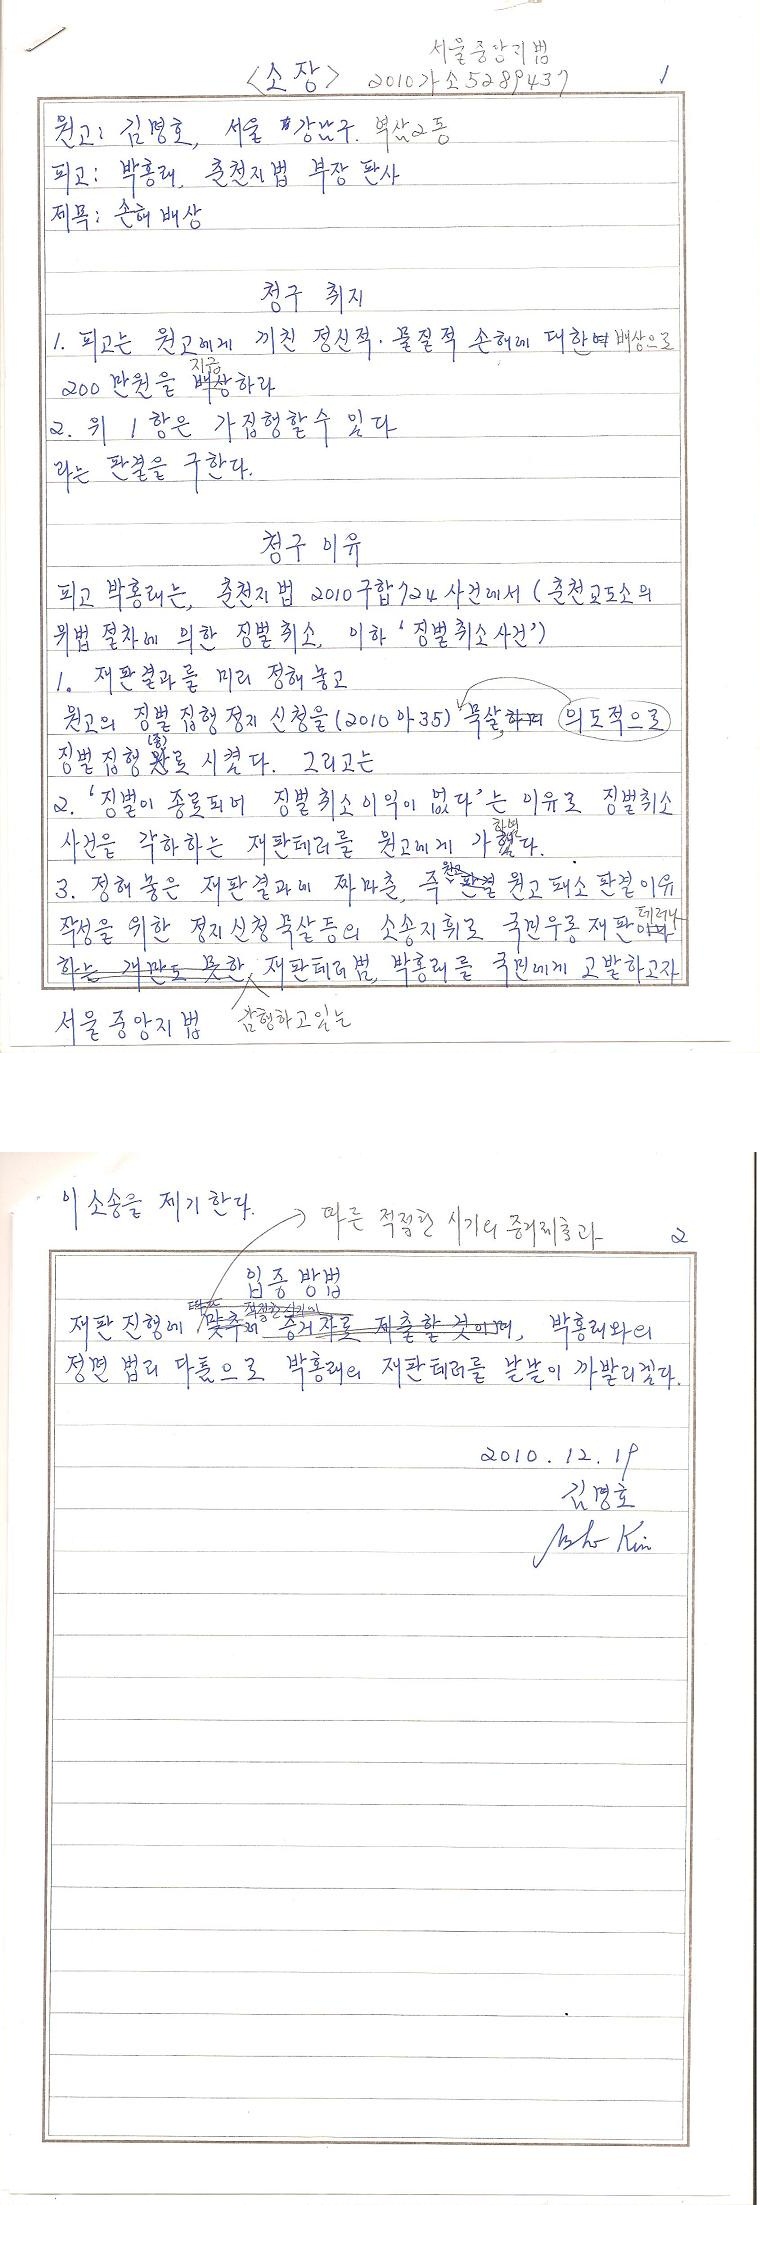 서울중앙지법
<소장> 2010가소5289437 1
원고: 김명호, 서울 강남구 역삼2동
피고: 박홍래, 춘천지법 부장 판사
제목: 손해배상
청구 취지
1. 피고는 원고에게 끼친 정신적·물질적 손해에 대한 배상으로
지급
200만원을 배상하라
2. 위 1항은 가집행할 수 있다
라는 판결을 구한다.
청구 이유
피고 박홍래는, 춘천지법 2010구합724 사건에서 (춘천교도소의
위법 절차에 의한 징벌취소, 이하 '징벌취소사건')
1. 재판결과를 미리 정해 놓고
원고의 징벌 집행정지 신청을 (2010아35) 묵살하며 의도적으로
(종)
징벌 집행 완료 시켰다. 그리고는
2. '징벌이 종료되어 징벌취소 이익이 없다'는 이유로 징벌취소
하며
사건을 각하하는 재판테러를 원고에게 가했다.
3. 정해 놓은 재판결과에 짜마춘, 즉 원고 판결 원고 패소 판결이유
작성을 위한 정지신청 묵살등의 소송지휘로 국민우롱 재판 테러나
하는 개만도 못한 재판테러범, 박홍래를 국민에게 고발하고자
서울중앙지법 감행하고있는
이 소송을 제기한다.
따른 적절한 시기의 증거제출과 2
입증방법
적절한 시기에
재판 진행에 맞추어 증거자료 제출할 것이며, 박홍래와의
정면 법리 다툼으로 박홍래의 재판테러를 낱낱이 까발리겠다.
2010. 12. 19
김명호
Kim